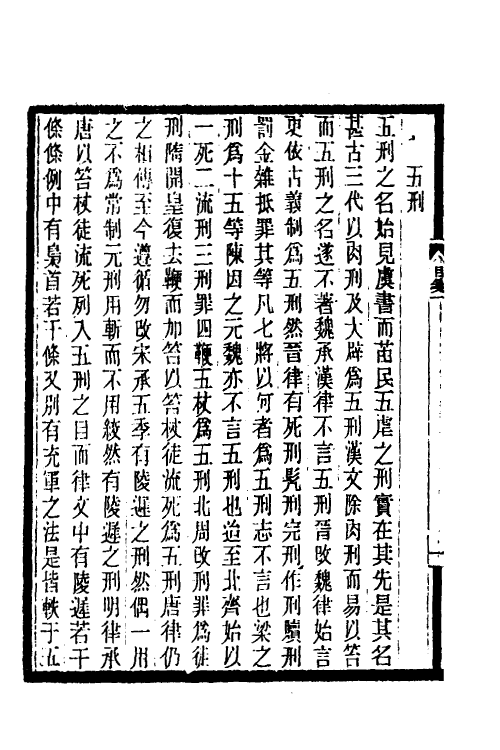 五刑
五刑之名始見虞書而苗民五虐之刑實在其先是其名
甚古三代以肉刑及大辟爲五刑漢文除肉刑而易以笞
而五刑之名遂不著魏承漢律不言五刑晉改魏律始言
更依古義制爲五刑然晉律有死刑髡刑完刑作刑贖刑
罰金雜抵罪其等凡七將以何者爲五刑志不言也梁之
刑爲十五等陳因之元魏亦不言五刑也迨至北齊始以
一死二流刑三刑罪四鞭五杖爲五刑北周改刑罪爲徒
刑隋開皇復去鞭而加笞以笞杖徒流死爲五刑唐律仍
之相傳至今遵循勿改宋承五季有陵遲之刑然偶一用
之不爲常制元刑用斬而不用絞然有陵遲之刑明律承
唐以笞杖徒流死列入五刑之目而律文中有陵遲若干
條條例中有梟首若干條又別有充軍之法是皆軼于五